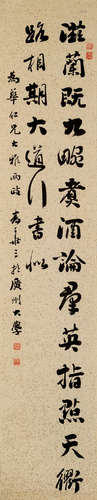 滋蘭既九畹賣酒論群英指點天衢
路相期大道行書似
為華仁兄大雅兩政
於廣州大學